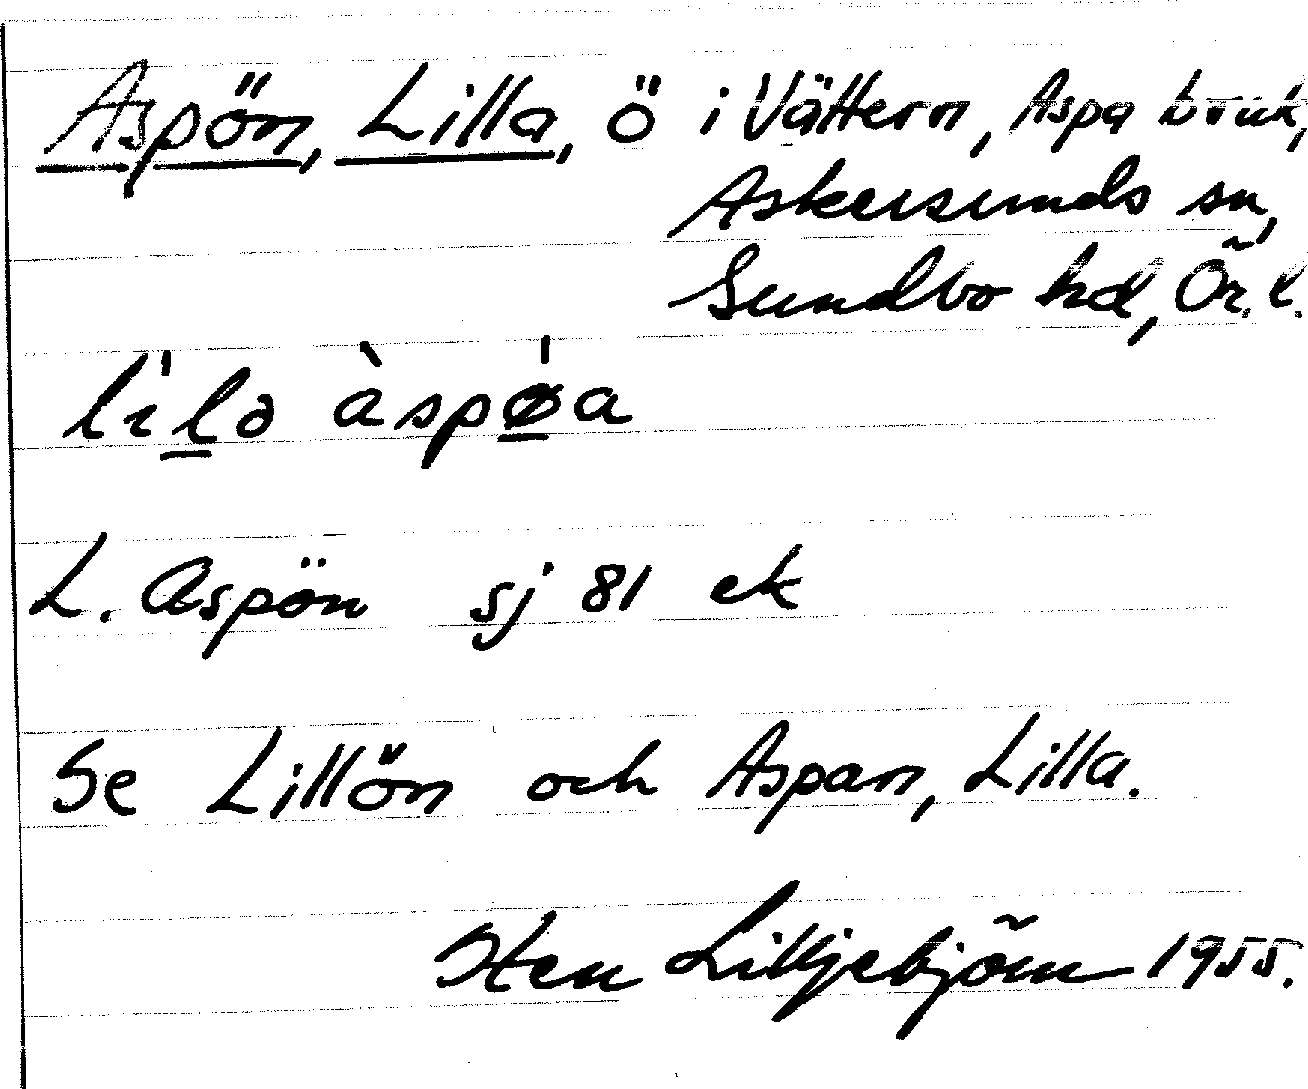 Aspön, Lilla, ö i Vättern, Aspa bruk,
Askersunds sn,
Sundbo hd, Ör. l.
lı̍lə àspø̍a
L. Aspön sj 81 ek
Se Lillön och Aspan, Lilla.
Sten Lilljebjörn 1955.